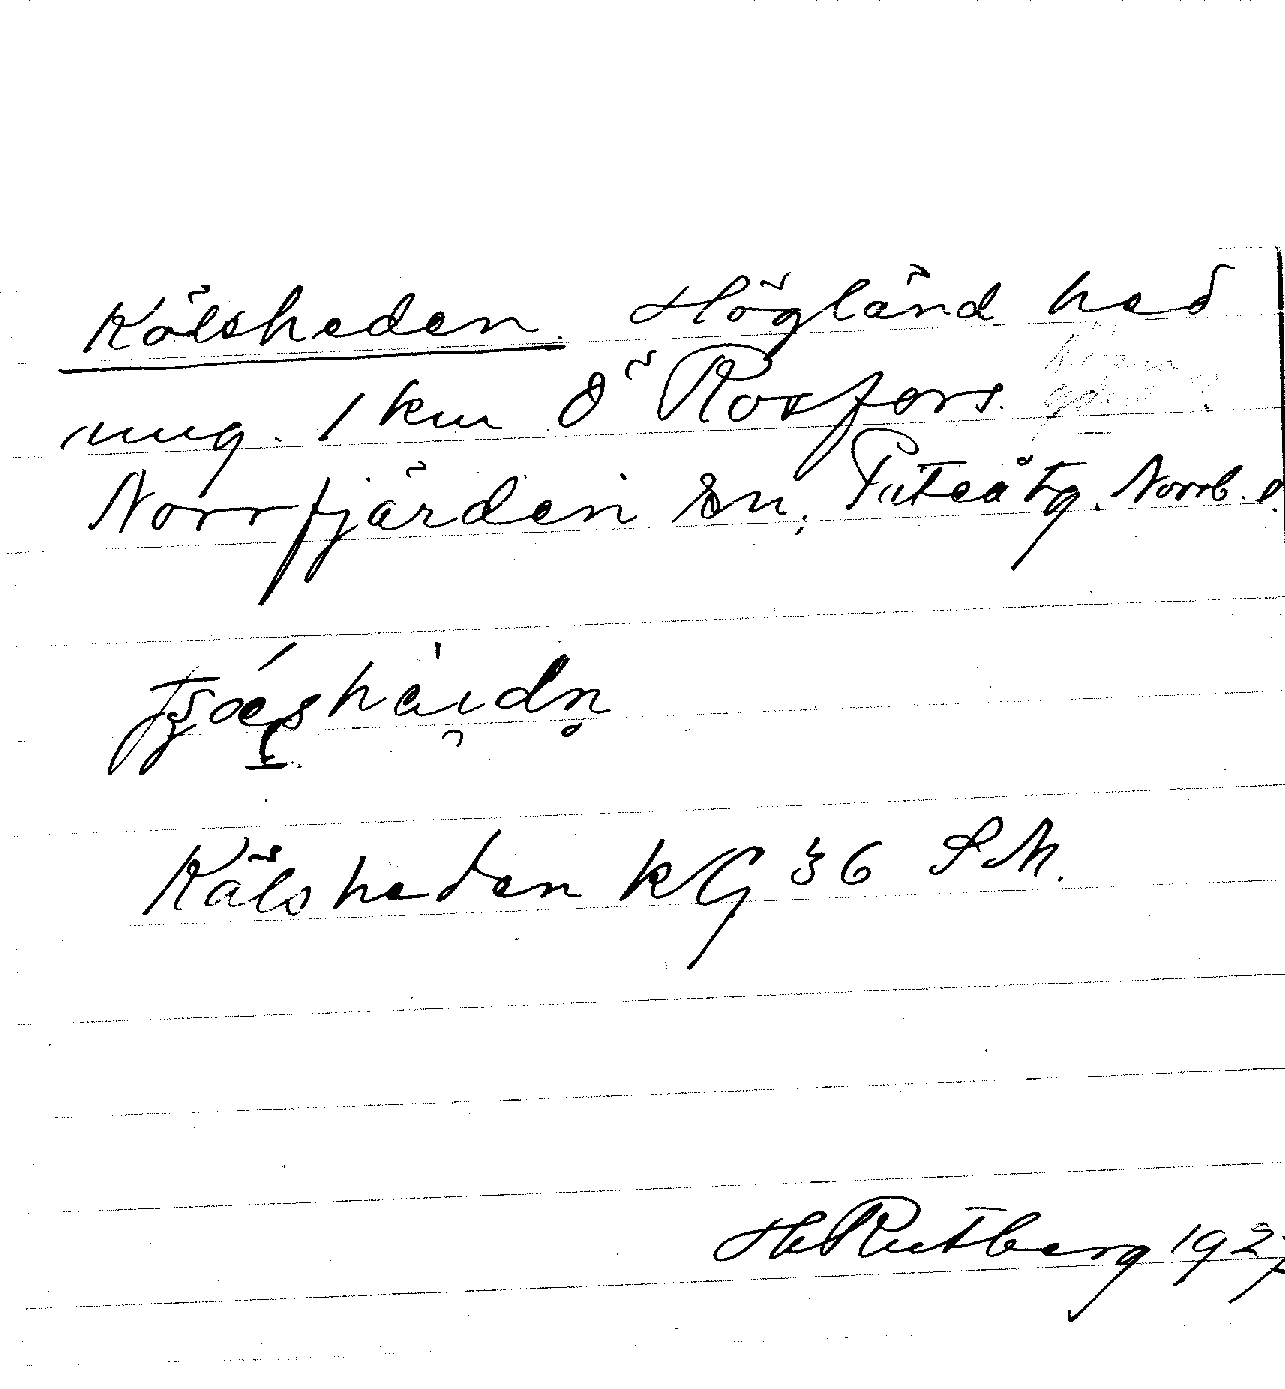 Kälsheden. Högländ hed
ung. 1 km Ö Rosfors.
Norrfjärden sn, Piteå tg. Norrb. l.
Kälsheden kG 36 SM.
H Rutberg 1927